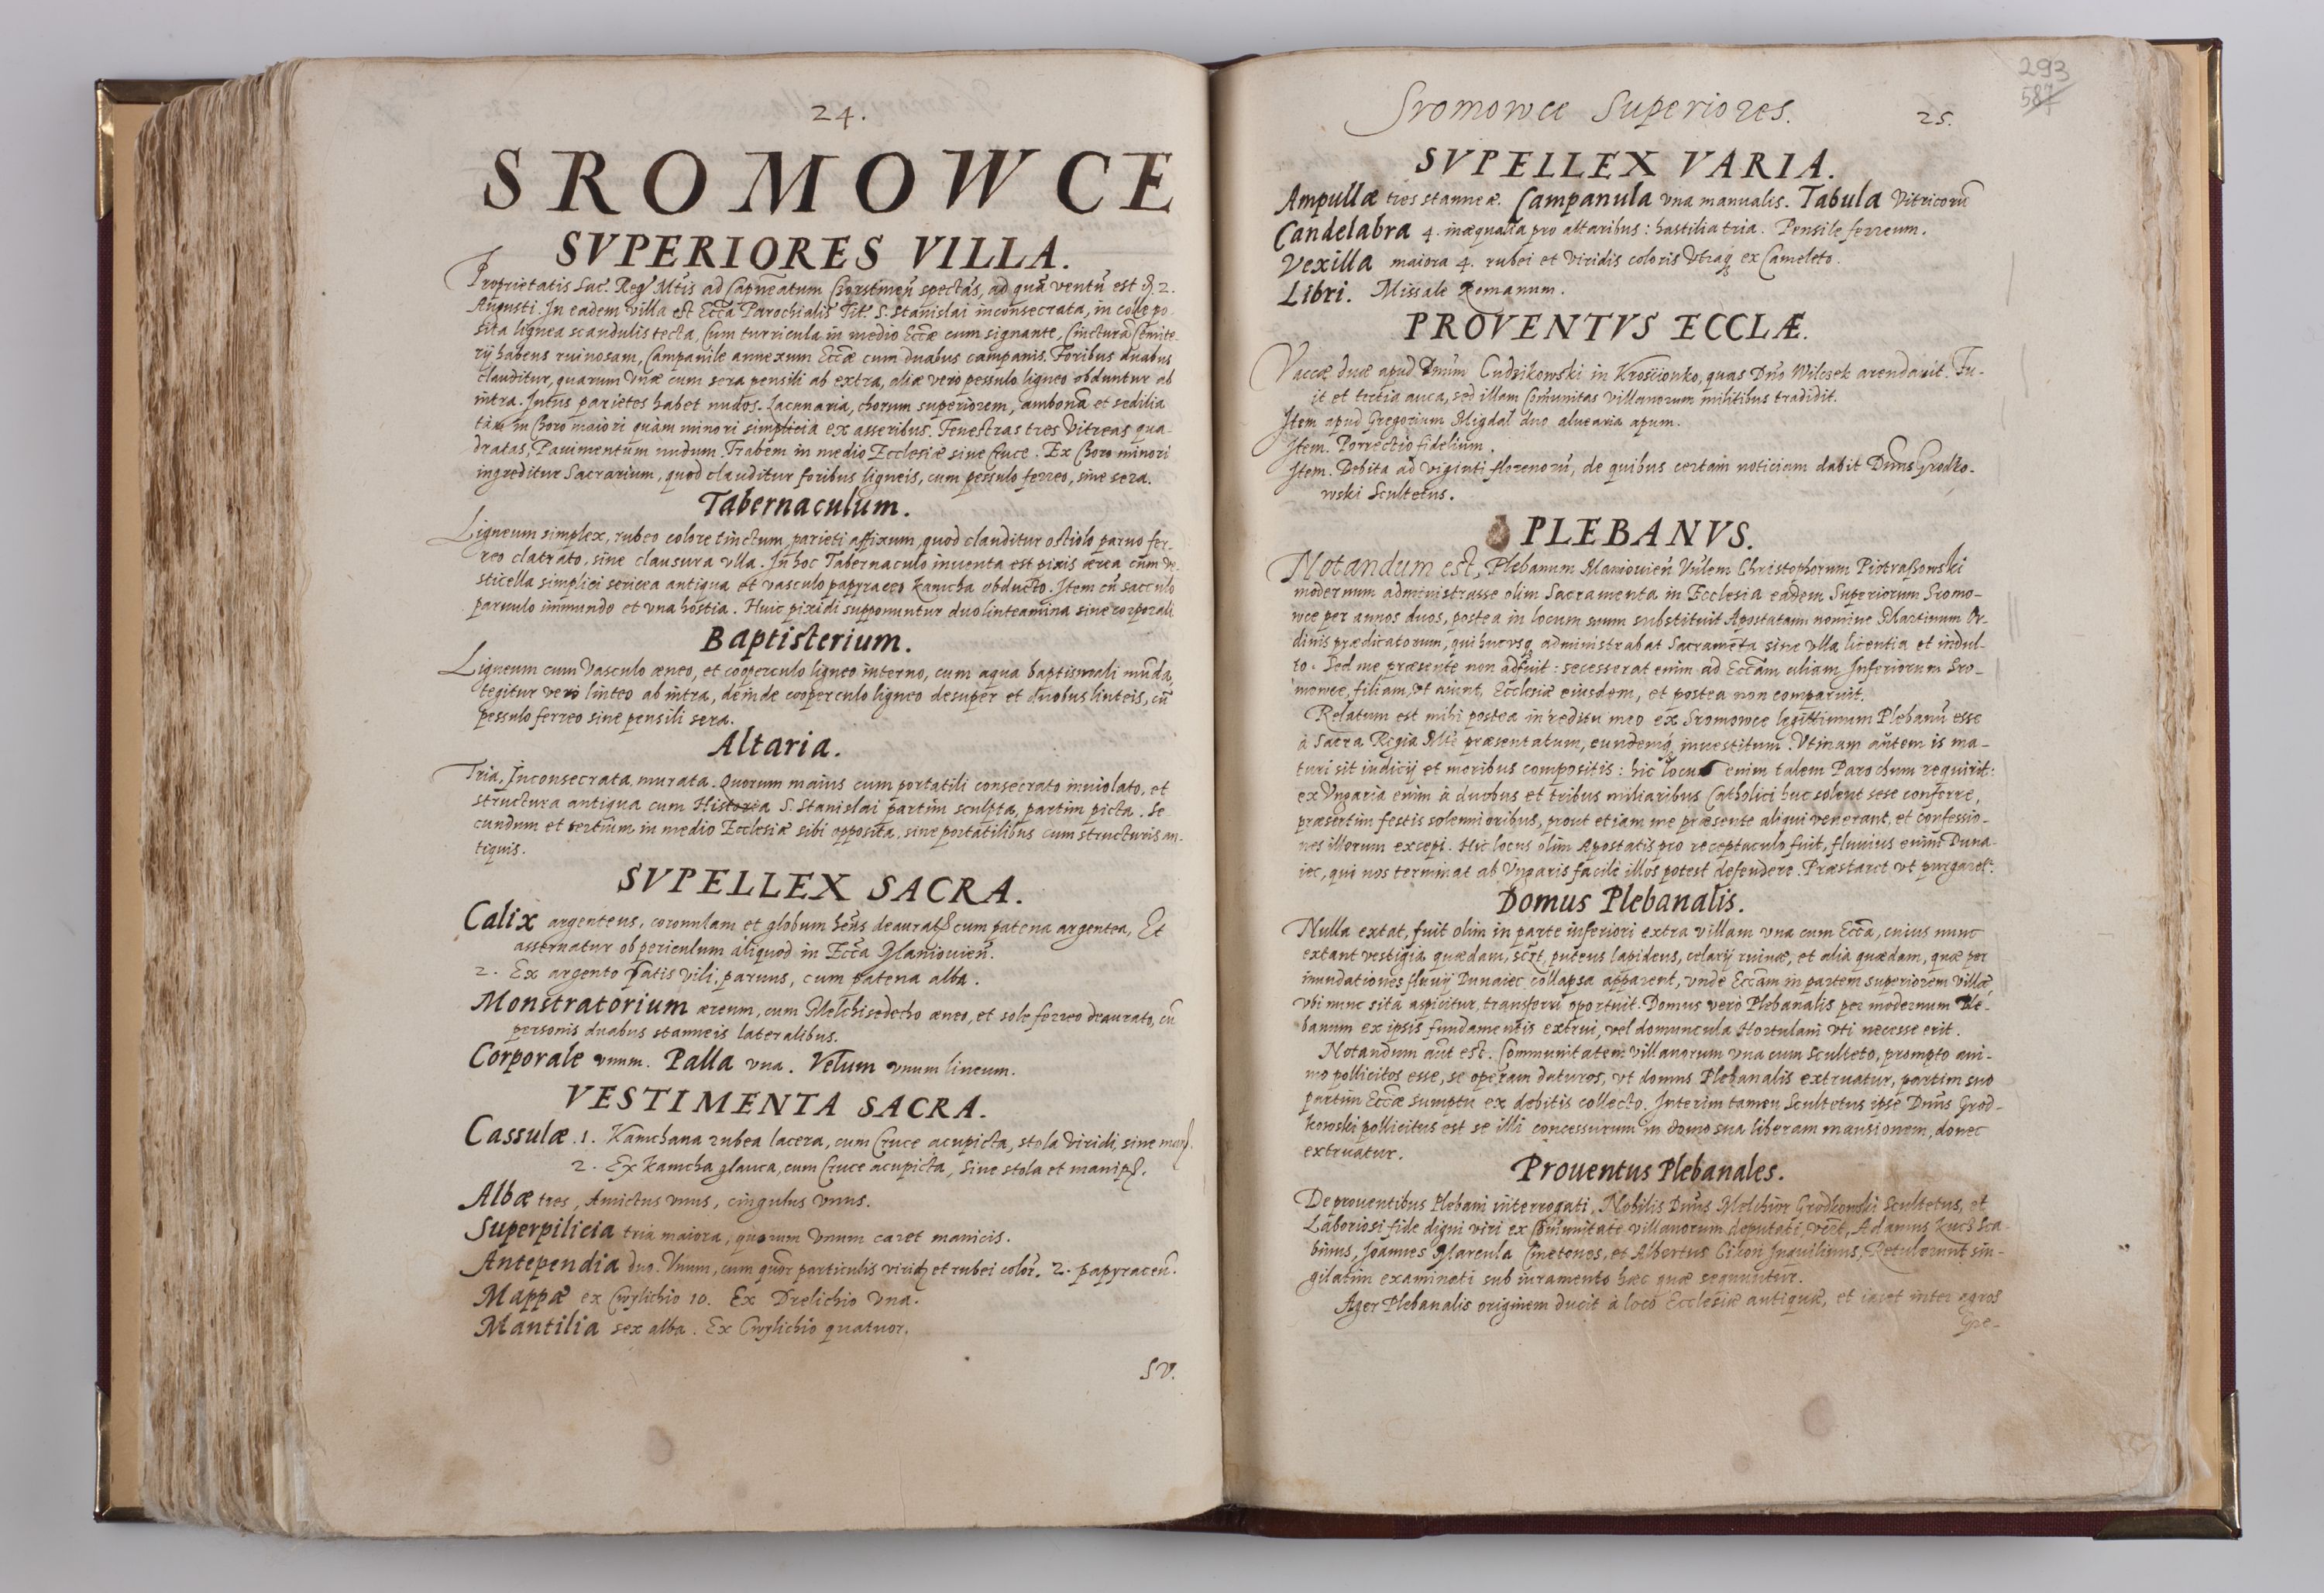 24.
SROMOWCE
SVPERIORES VILLA.
Proprietatis Sac. Reg. Mtis ad Capneatum spectās, ad quā ventū est d. 2.
Augusti. In eadem villa est Eccła Parochialis Tit. S. Stanislai inconsecrata, in colle po-
sita lignea scandulis tecta, Cum turricula in medio Eccæ cum signante, Cincturā Cemite-
rij habens ruinosam, Campanile annexum Eccæ cum duabus campanis. Foribus duabus
clauditur, quarum vnæ cum sera pensili ab extra, aliæ verò pessulo ligneo obduntur ab
intra. Intus parietes habet nudos. Lacunaria, chorum superiorem, ambonā et sedilia
tàm in Choro maiori quàm minori simplicia ex asseribus. Fenestras tres Vitreas qua-
dratas, Pauimentum nudum. Trabem in medio Ecclesiæ sine Cruce. Ex Choro minori
ingreditur Sacrarium, quod clauditur foribus ligneis, cum pessulo ferreo, sine sera.
Tabernaculum.
Ligneum simplex, rubeo colore tinctum, parieti affixum, quod clauditur ostiolo paruo fer-
reo clatrato, sine clausura vlla. In hoc Tabernaculo inuenta est pixis ærea cum ve-
sticella simplici sericea antiqua et vasculo papyraceo kamcha obducto. Item cū sacculo
paruulo immundo et vna hostia. Huic pixidi supponuntur duo linteamina sine corporali
Baptisterium.
Ligneum cum Vasculo æneo, et cooperculo ligneo interno, cum aqua baptismali mūda,
tegitur verò linteo ab intra, deinde cooperculo ligneo desuper et duobus linteis, cū
pessulo ferreo sine pensili sera.
Altaria.
Tria, Inconsecrata murata. Quorum maius cum portatili consecrato inuiolato, et
structura antiqua cum Historia S. Stanislai partim sculpta, partim picta. Se-
cundum et tertium in medio Ecclesiæ sibi opposita, sine portatilibus cum structuris an-
tiquis.
SVPELLEX SACRA.
Calix argenteus, coronulam et globum hēns deaurat cum patena argentea, Et
asseruatur ob periculum aliquod in Eccła Maniouień.
2. Ex argento satis vili, paruus, cum patena alba.
Monstratorium æreum, cum Melchisedecho æneo, et sole ferreo deaurato, cū
personis duabus stanneis lateralibus.
Corporale vnum. Palla vna. Velum vnum lineum.
VESTIMENTA SACRA.
Cassulæ. 1. Kamchana rubea lacera, cum Cruce acupicta, stola viridi, sine man
2. Ex kamcha glauca, cum Cruce acupicta, sine stola et manip.
Albæ tres, Amictus vnus, cingulus vnus.
Superpilicia tria maiora, quorum vnum caret manicis.
Antependia duo. Vnum, cum quōr particulis virid et rubei color. 2. papyraceū.
Mappæ ex Cwylichio 10. Ex Drelichio vna.
Mantilia sex alba. Ex Cwylichio quatuor.
SV.
293
587
Sromowce Superiores.
25.
SVPELLEX VARIA.
Ampullæ tres stanneæ. Campanula vna manualis. Tabula Vitricorū
Candelabra 4. inæqualia pro altaribus: hastilia tria. Pensile ferreum.
Vexilla maiora 4. rubei et Viridis coloris vtraq ex Cameleto.
Libri. Missale Romanum.
PROVENTVS ECCLÆ.
Vaccæ duæ apud Dnūm Cudzikowski in Krosćionko, quas Dño Wilczek arendauit. Fu-
it et tertia auca, sed illam Comunitas villanorum militibus tradidit.
Item apud Gregorium Migdal duo aluearia apum.
Item. Porrectio fidelium.
Item. Debita ad viginti florenorū, de quibus certam noticiam dabit Dnūs Grodko-
wski Scultetus.
PLEBANVS.
Notandum est, Plebanum Maniouień Vnlem Christophorum Piotraßowski
modernum administrasse olim Sacramenta in Ecclesia eādem Superiorum Sromo-
wce per annos duos, postea in locum suum substituit Apostatam nomine Martinum Or-
dinis prædicatorum, qui hucvsq administrabat Sacramēta sine vlla licentia et indul-
to. Sed me præsente non adfuit: secesserat enim ad Eccłam aliam Inferiorum Sro-
mowce, filiam, vt aiunt, Ecclesiæ eiusdem, et postea non comparuit.
Relatum est mihi postea in reditu meo ex Sromowce legittimum Plebanū esse
à Sacra Regia Mte præsentatum, eundemq inuestitum. Vtinam autem is ma-
turi sit iudicij et moribus compositis: hic locus enim talem Parochum requirit:
ex Vngaria enim à duobus et tribus miliaribus Catholici huc solent sese conferre,
præsertim festis solennioribus, prout etiam me præsente aliqui venerant, et confessio-
nes illorum excepi. Hic locus olim Apostatis pro receptaculo fuit, fluuius enim Duna-
iec, qui nos terminat ab Vngaris facilè illos potest defendere. Præstaret vt purgaret.
Domus Plebanalis.
Nulla extat, fuit olim in parte inferiori extra villam vna cum Eccła, cuius nunc
extant vestigia quædam, sct, puteus lapideus, celarij ruinæ, et alia quædam, quæ per
inundationes fluuij Dunaiec collapsa apparent, vnde Eccłam in partem superiorem villæ,
vbi nunc sita aspicitur, transferri oportuit. Domus verò Plebanalis per modernum Ple-
banum ex ipsis fundamentis extrui, vel domuncula Hortulani vti necesse erit.
Notandum aūt est. Communitatem villanorum vna cum Sculteto, prompto ani-
mo pollicitos esse, se operam daturos, vt domus Plebanalis extruatur, partim suo
partim Eccæ sumptu ex debitis collecto. Interim tamen Scultetus ipse Dnūs Grod-
kowski pollicitus est se illi concessurum in domo sua liberam mansionem, donec
extruatur.
Prouentus Plebanales.
De prouentibus Plebani interrogati, Nobilis Dnūs Melchior Grodkowski Scultetus, et
Laboriosi fide digni viri ex Comunitate villanorum deputati, vect, Adamus Kuch Sca-
binus, Joannes Marcula Cmetones, et Albertus Cikon Inquilinus, Retulerunt sin-
gilatim examinati sub iuramento hæc quæ sequuntur.
Ager Plebanalis originem ducit à loco Ecclesiæ antiquæ, et iacet inter agros
Gre-